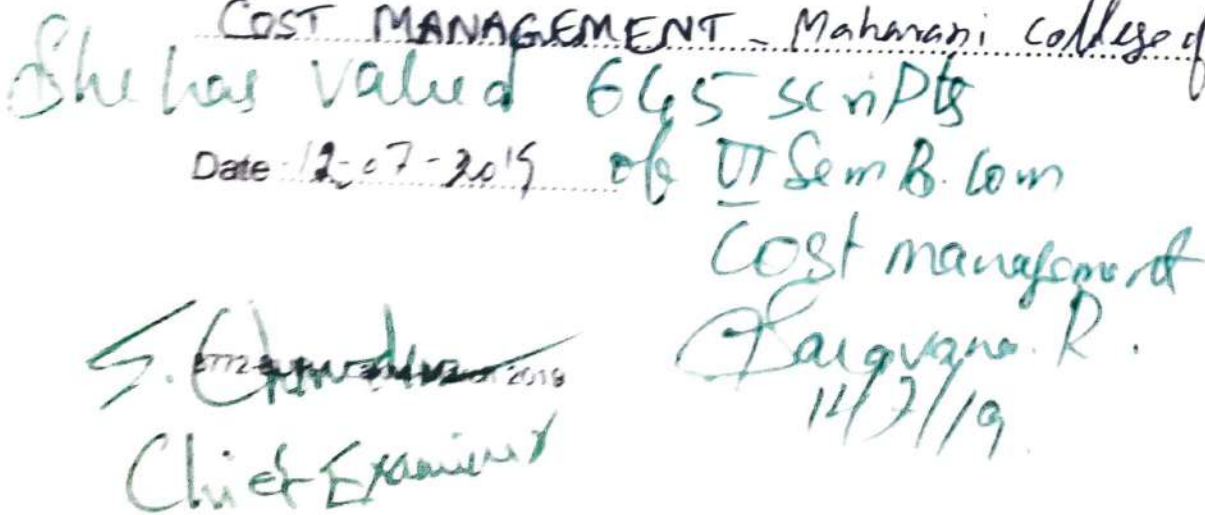 COST MANAGEMENT - Maharani College of
She has valued 645 scripts
Date 12-07-2019 of VI Sem B.Com
Cost management
S.
Saravana. R.
14/7/19.
Chief Examiner